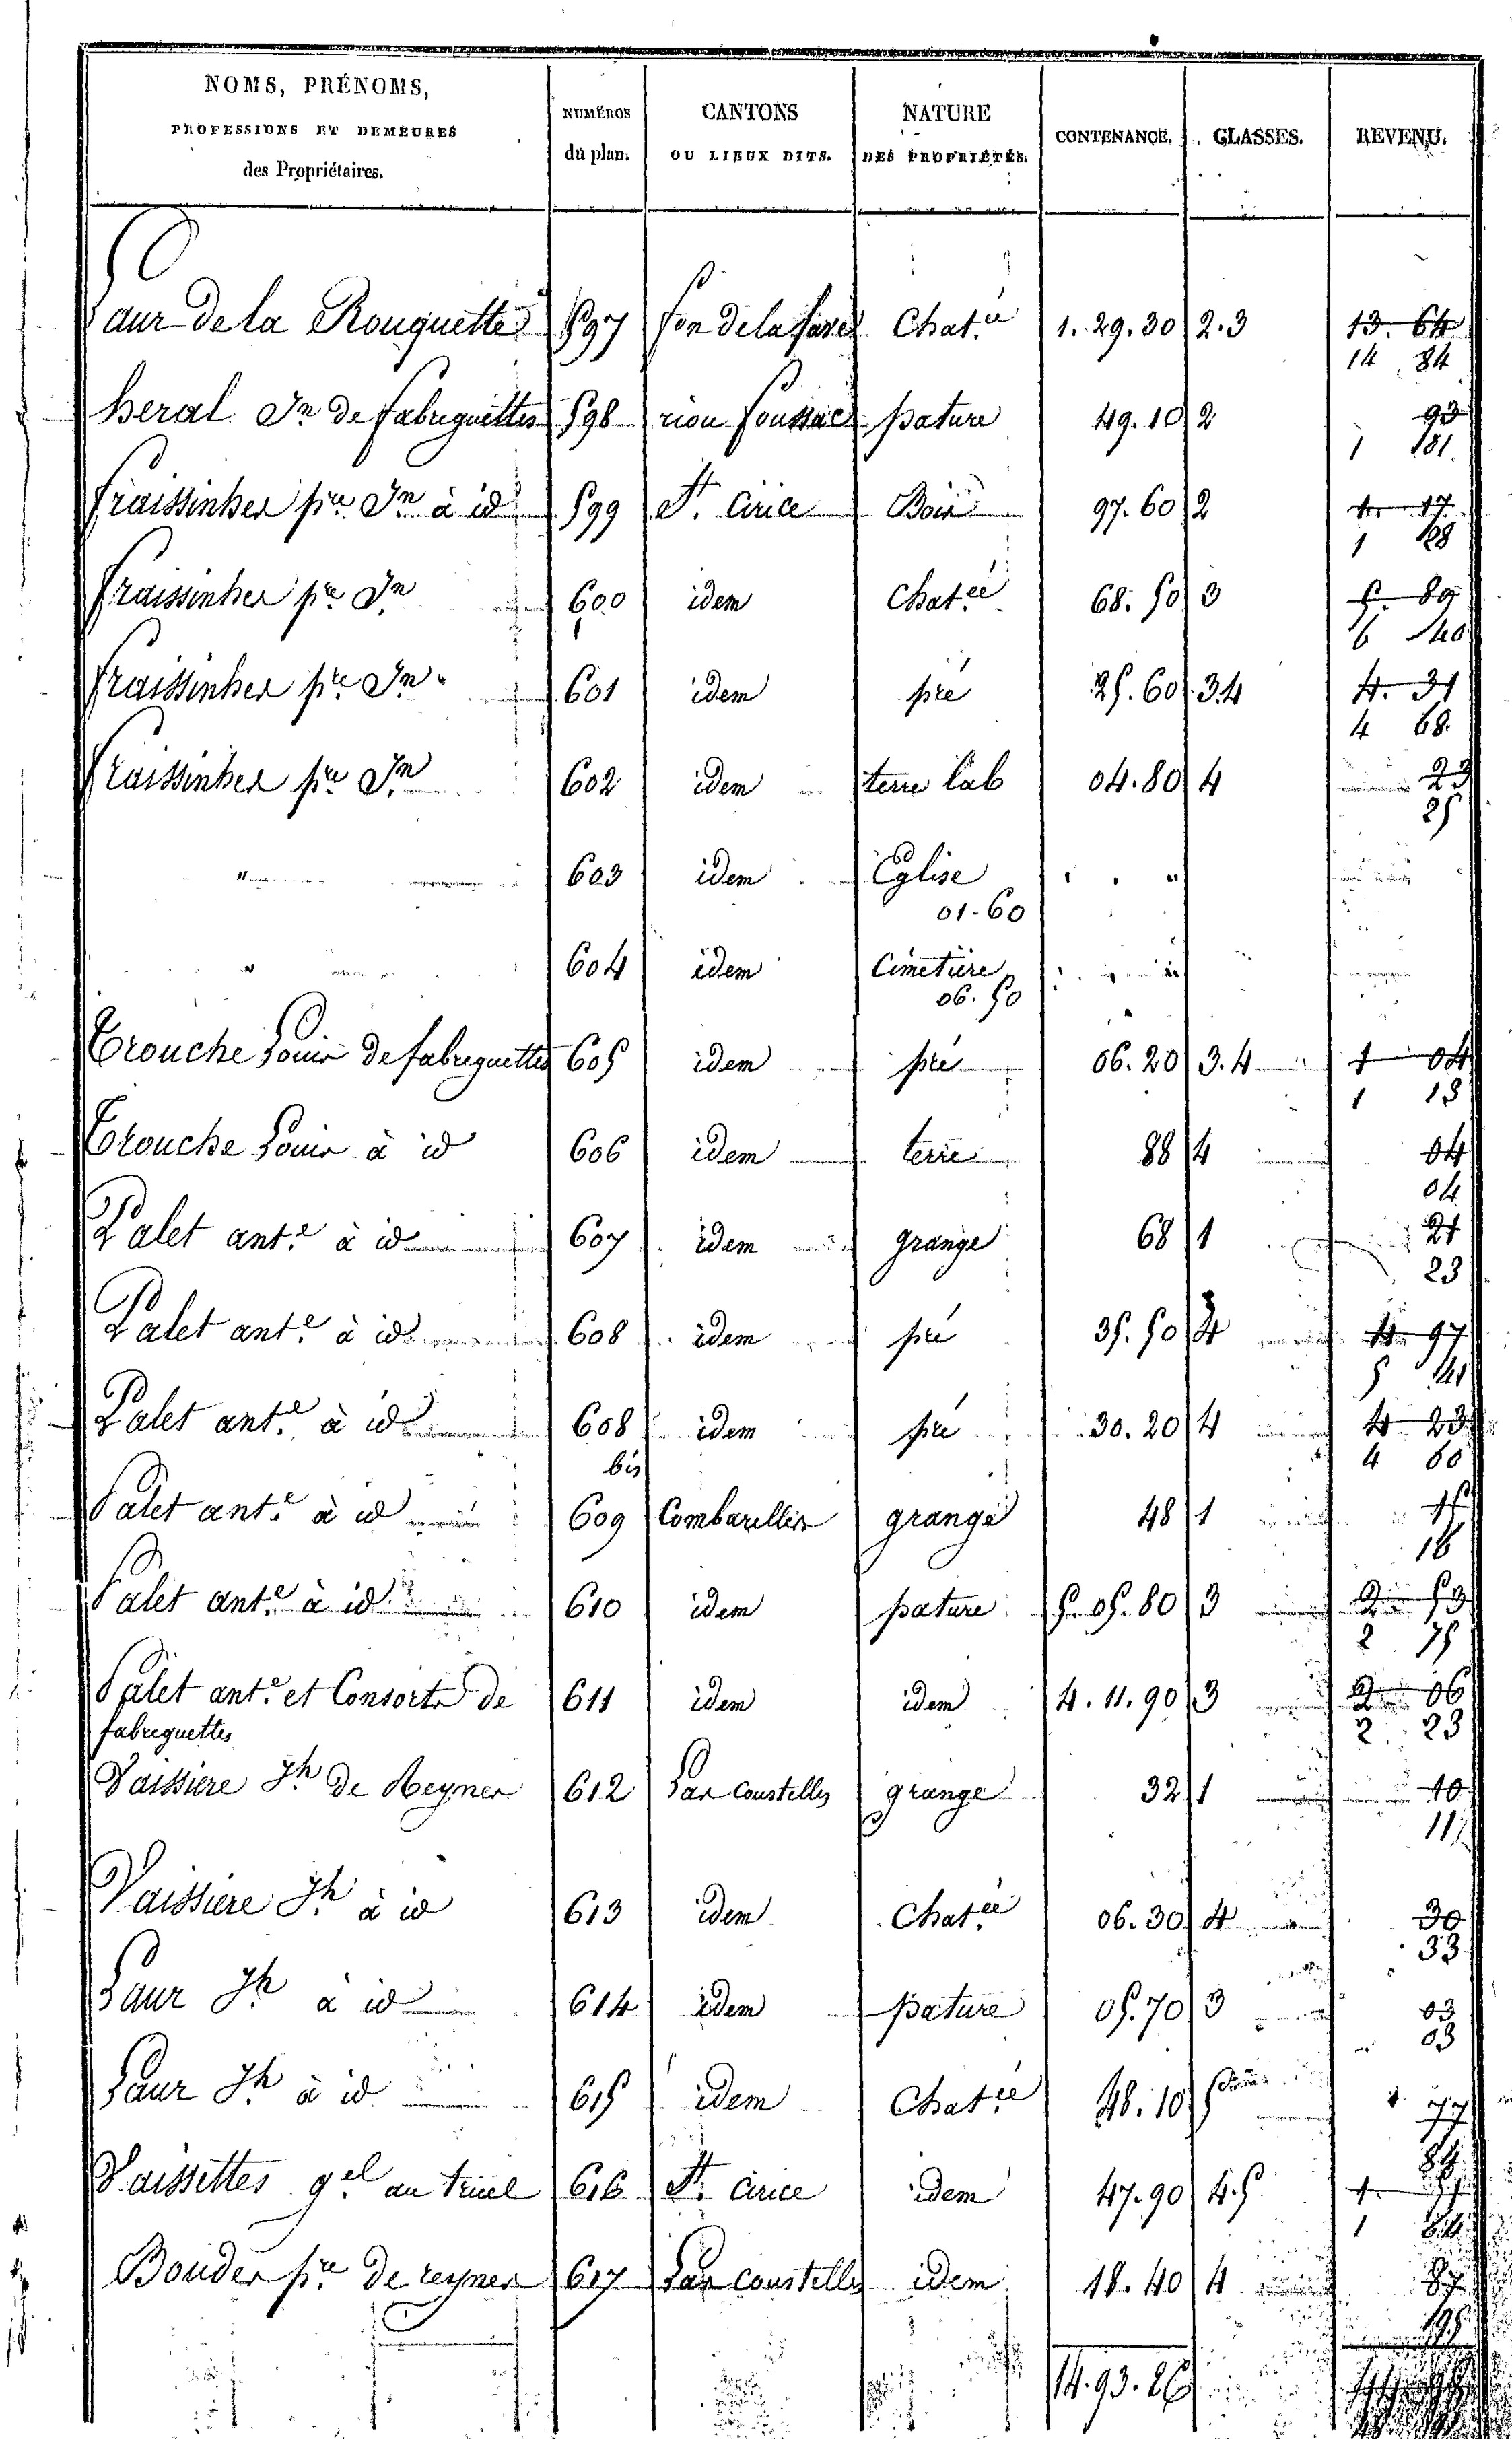 NOMS, PRÉNOMS, PROFESSIONS ET DEMEURES des Propriétaires. NUMÉROS du plan. CANTONS OU LIEUX DITS. NATURE DES PROPRIÉTÉS. CONTENANCE. CLASSES. REVENU.
Saur de la Rouquette 597 Chat.ée 1. 29. 30 2.3 13. 64
14 84
heral Jn de fabreguettes 598 riou foussac pature 49. 10 2 93
1
fraissinhes pre Jn à id 599 St. Cirice Bois 97. 60 2 1. 17
1
fraissinhes pre Jn 600 idem Chat.ée 68. 50 3 5. 89
6 40
fraissinhes pre Jn 601 idem pré 25. 60 3.4 4. 31
4 68
fraissinhes pre Jn 602 idem terre lab 04. 80 4 23
25
" 603 idem Eglise
01-60
" 604 idem Cimetière
06. 50
Trouche Louis de fabreguettes 605 idem pré 06. 20 3. 4 1 04
1 13
Trouche Louis à id 606 idem terre 88 4 04
04
Palet ant.e à id 607 idem grange 68 1 21
23
Palet ant.e à id 608 idem pré 35. 50 4 97
5 41
Palet ant.e à id 608 idem pré 30. 20 4 4 23
bis 4 60
Palet ant.e à id 609 Combarelles grange 48 1 15
16
Palet ant.e à id 610 idem pature 5. 05. 80 3 2 53
2 75
Palet ant.e et Consorts de 611 idem idem 4. 11. 90 3 2 06
fabreguettes 2 23
Vaissiere Jh de Reynes 612 Las Coustelles grange 32 1 10
11
Vaissiere Jh à id 613 idem Chat.ée 06. 30 4 30
33
Saur Jh à id 614 idem pature 05. 70 3 03
03
Saur Jh à id 615 idem Chat.ée 48. 10 5 77
84
Vaissettes gel au truel 616 St. Cirice idem 47. 90 4.5 1.
1
Boudes pre de reynes 617 Las coustelles idem 18. 40 4 87
14. 93. 26